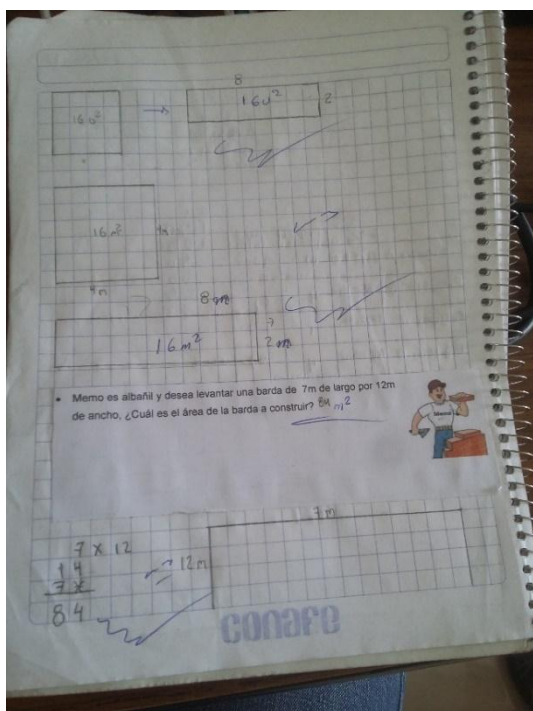 8
16 u²
→
16u²
2
16 m²
4m
4m
8 m
16 m²
2 m
• Memo es albañil y desea levantar una barda de 7m de largo por 12m
de ancho, ¿Cuál es el área de la barda a construir? 84 m²
7m
7 x 12
14
12m
7x
84
conafe